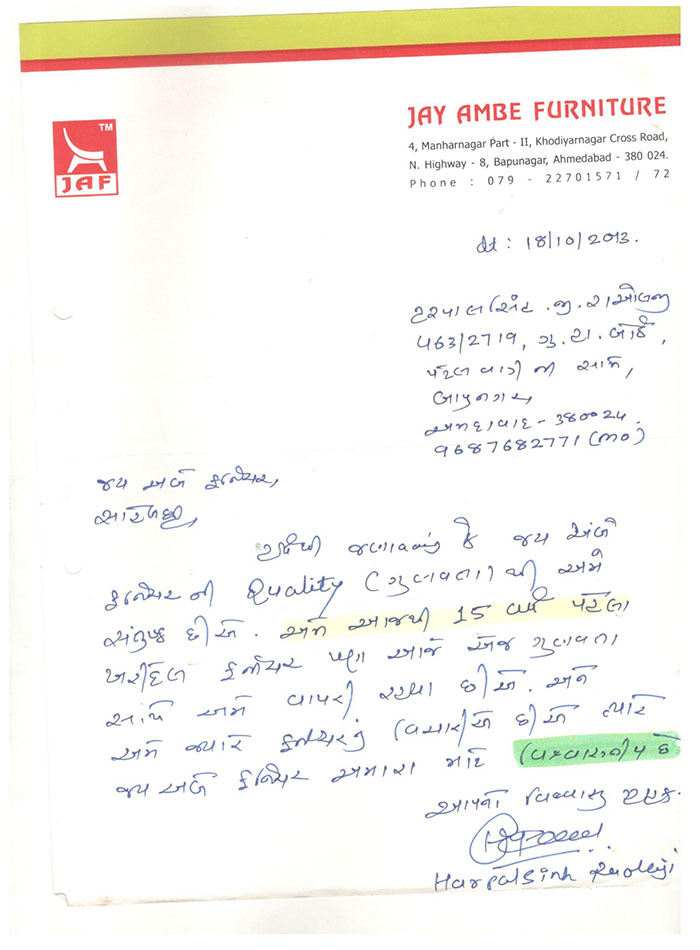 JAY AMBE FURNITURE
4, Manharnagar Part - II, Khodiyarnagar Cross Road,
N. Highway - 8, Bapunagar, Ahmedabad - 380 024.
Phone : 079 - 22701571 / 72
TM
JAF
dt : 18/10/2013.
હરપાલસિંહ . જી . રાઓલજી
463/2719, ગુ. હા. બોર્ડ,
પટેલ વાડી ની સામે,
બાપુનગર
અમદાવાદ - 380024.
9687682771 (mo)
જય અંબે ફર્નિચર,
જણાવવાનું કે જય અંબે
ફર્નિચર ની Quality (ગુણવતા) થી અમે
સંતુષ્ઠ છીએ. અમે આજથી 15 વર્ષ પહેલા
ખરીદેલ ફર્નિચર પણ આજે એજ ગુણવતા
સાથે અમે વાપરી રહ્યા છીએ. અને
અમે જ્યારે ફર્નિચરનું વિચારીએ છીએ ત્યારે
જય અંબે ફર્નિચર અમારા માટે વિશ્વાસનીય છે
આપનો વિશ્વાસુ ગ્રાહક.
Harpalsinh Raolji